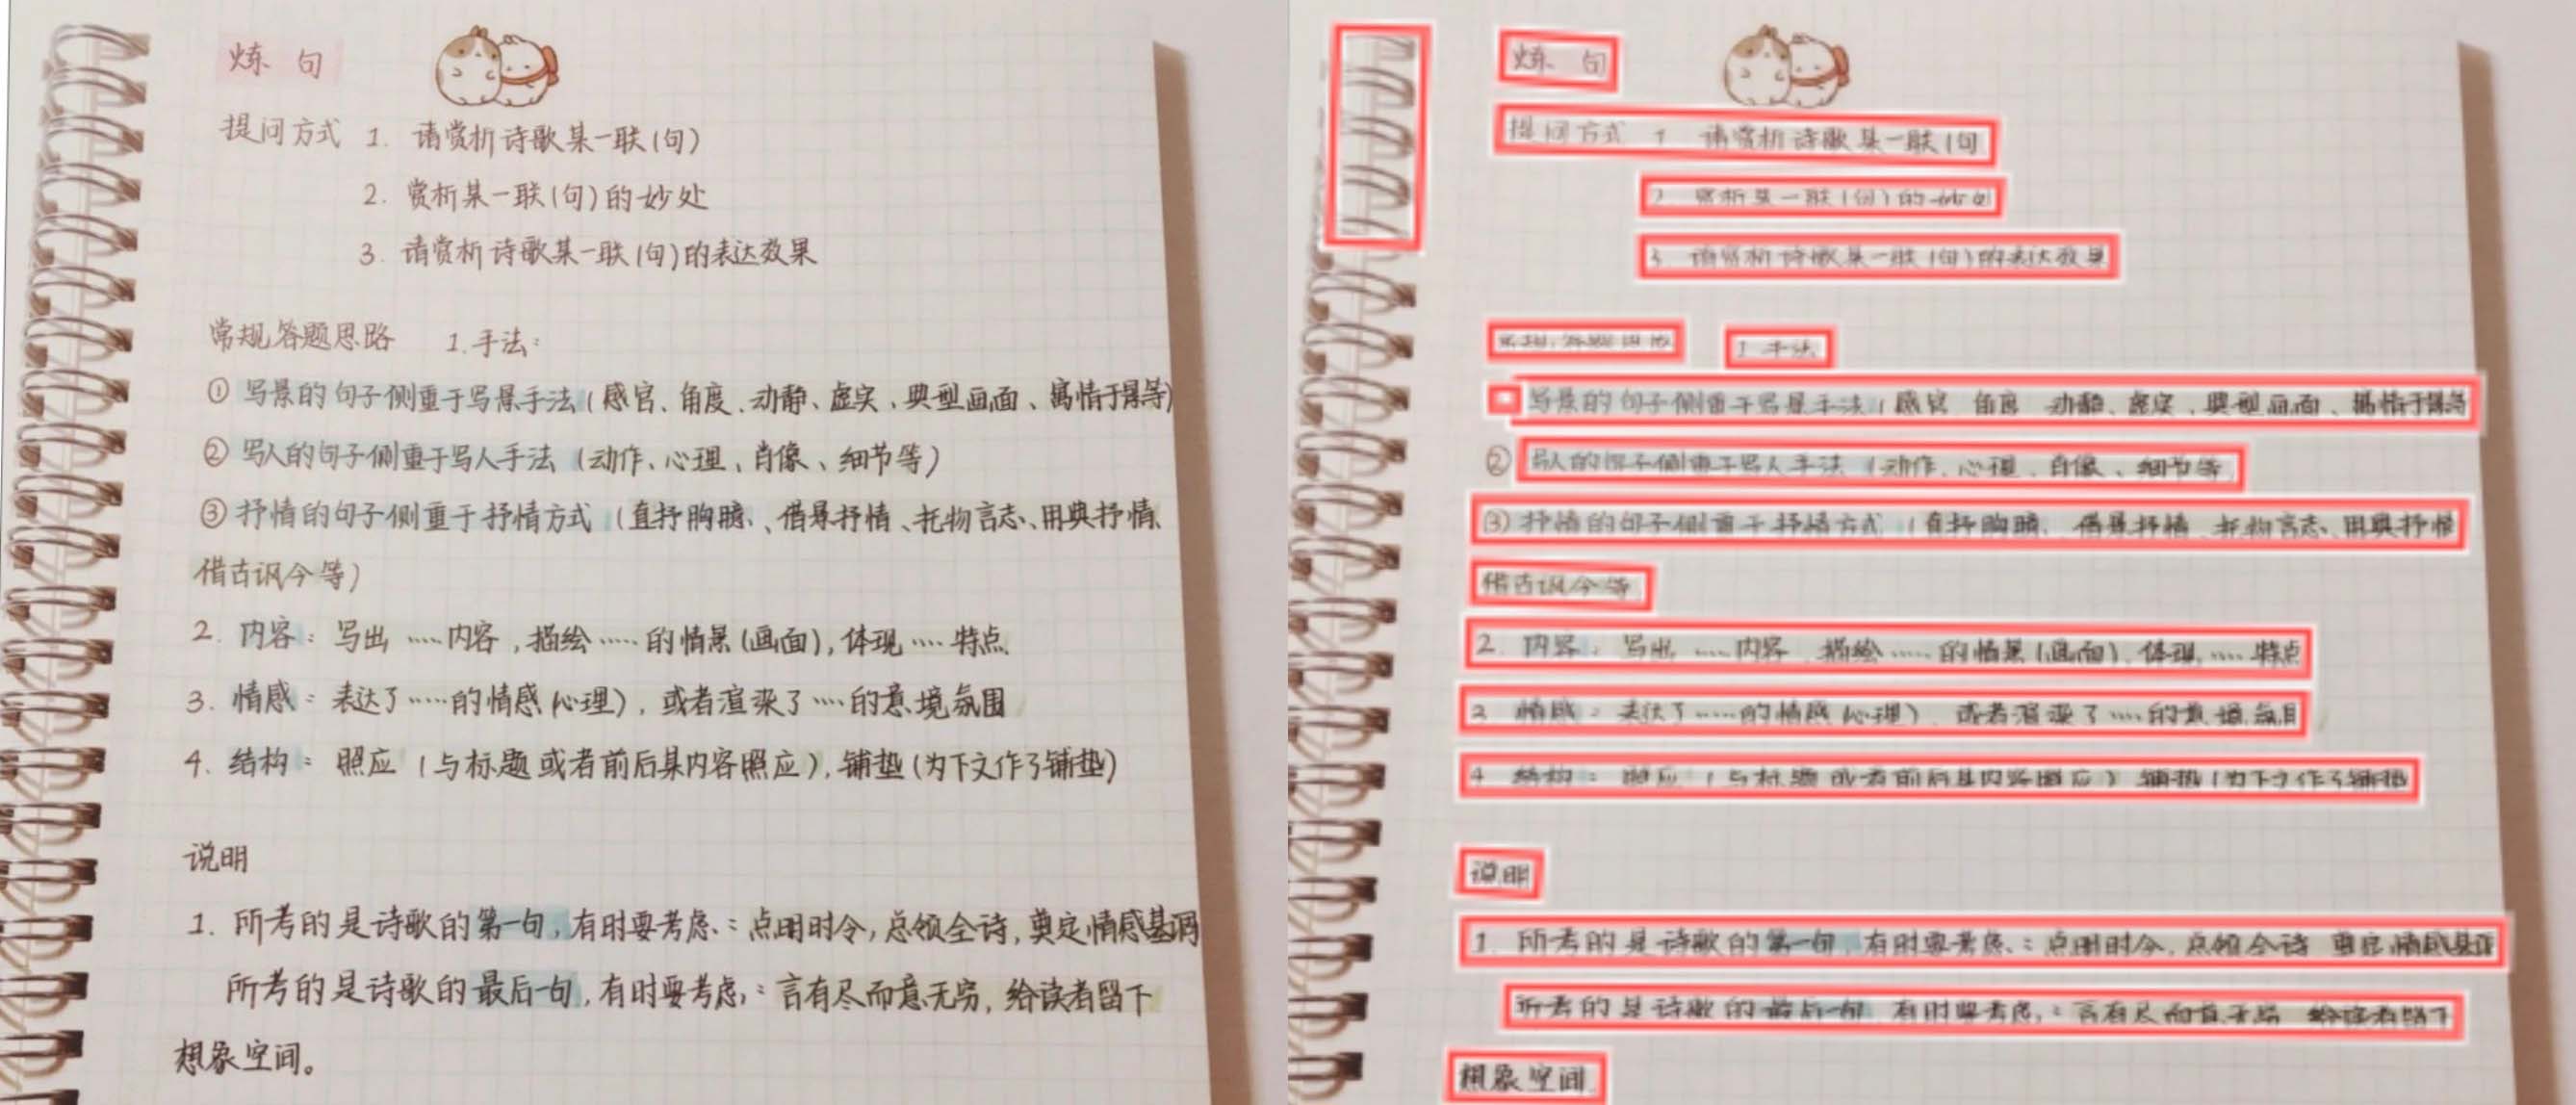 炼 句
提问方式 1. 请赏析诗歌某一联(句)
2. 赏析某一联(句)的妙处
3. 请赏析诗歌某一联(句)的表达效果
常规答题思路 1.手法:
① 写景的句子侧重于写景手法(感官、角度、动静、虚实、典型画面、寓情于景等)
② 写人的句子侧重于写人手法(动作、心理、肖像、细节等)
③ 抒情的句子侧重于抒情方式(直抒胸臆、借景抒情、托物言志、用典抒情、
借古讽今等)
2. 内容: 写出……内容,描绘……的情景(画面),体现……特点
3. 情感: 表达了……的情感(心理),或者渲染了……的意境氛围
4. 结构: 照应(与标题或者前后某内容照应),铺垫(为下文作了铺垫)
说明
1. 所考的是诗歌的第一句,有时要考虑:点明时令,总领全诗,奠定情感基调
所考的是诗歌的最后一句,有时要考虑:言有尽而意无穷,给读者留下
想象空间。
炼 句
提问方式 1 请赏析诗歌某一联(句
2 赏析某一联(句)的妙处
3 请赏析诗歌某一联(句)的表达效果
常规答题思路 1 手法
写景的句子侧重于写景手法(感官 角度 动静、虚实、典型画面、寓情于景等
② 写人的句子侧重于写人手法(动作、心理、肖像、细节等
③ 抒情的句子侧重于抒情方式(直抒胸臆、借景抒情 托物言志、用典抒情
借古讽今等
2. 内容: 写出……内容 描绘……的情景(画面),体现……特点
3 情感: 表达了……的情感(心理) 或者渲染了……的意境氛围
4 结构: 照应(与标题或者前后某内容照应) 铺垫(为下文作了铺垫
说明
1. 所考的是诗歌的第一句,有时要考虑:点明时令,总领全诗 奠定情感基调
所考的是诗歌的最后一句 有时要考虑:言有尽而意无穷 给读者留下
想象空间